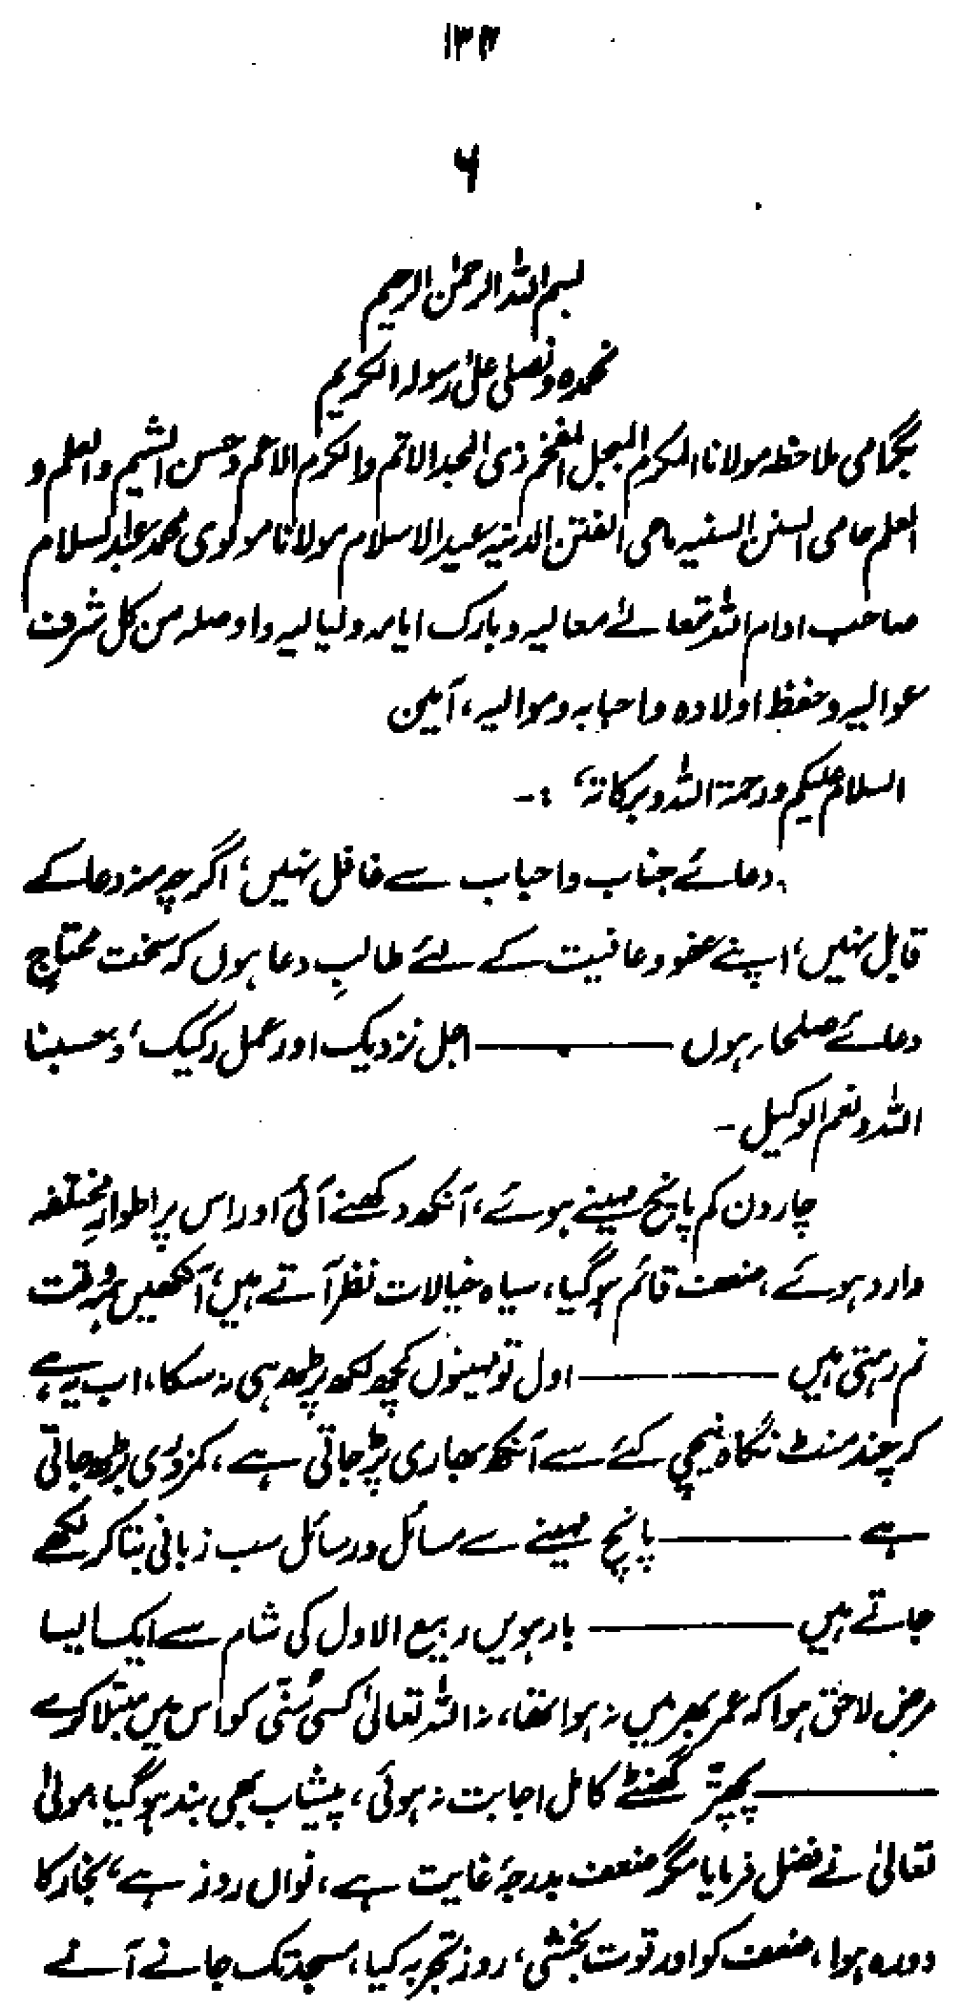 ۱۳۲
۶
بسم اللہ الرحمٰن الرحیم
نحمدہ ونصلی علیٰ رسولہ الکریم
بگرامی ملاحظہ مولانا المکرم المبجل المفخم ذی المجد الاتم والکرم الاعم وحسن الشیم والعلم و
العلم حامی السنن السنیہ ماحی الفتن الدنیہ عید الاسلام مولانا مولوی محمد عبدالسلام
صاحب ادام اللہ تعالےٰ معالیہ وبارک ایامہ ولیالیہ واوصلہ من کل شرف
عوالیہ وحفظ اولادہ واحبابہ وموالیہ، آمین
السلام علیکم ورحمۃ اللہ وبرکاتہ، :-
دعائے جناب واحباب سے غافل نہیں، اگرچہ منہ دعا کے
قابل نہیں، اپنے عفو وعافیت کے لئے طالبِ دعا ہوں کہ سخت محتاج
دعائے صلحاء ہوں ——— اجل نزدیک اور عمل رکیک، وحسبنا
اللہ ونعم الوکیل -
چار دن کم پانچ مہینے ہوئے، آنکھ دکھنے آئی اور اس پر اطوارِ مختلفہ
وارد ہوئے، ضعف قائم ہوگیا، سیاہ خیالات نظر آتے ہیں، آنکھیں ہروقت
نم رہتی ہیں ——— اول تو مہینوں کچھ لکھ پڑھ ہی نہ سکا، اب یہ ہے
کہ چند منٹ نگاہ نیچی کئے سے آنکھ بھاری پڑجاتی ہے، کمزوری بڑھ جاتی
ہے ——— پانچ مہینے سے مسائل ورسائل سب زبانی بتا کر لکھے
جاتے ہیں ——— بارہویں ربیع الاول کی شام سے ایک ایسا
مرض لاحق ہوا کہ عمر بھر میں نہ ہوا تھا، نہ اللہ تعالیٰ کسی سُنّی کو اس میں مبتلا کرے
——— پچھتّر گھنٹے کامل اجابت نہ ہوئی، پیشاب بھی بند ہوگیا، مولیٰ
تعالیٰ نے فضل فرمایا مگر ضعف بدرجۂ غایت ہے، نواں روز ہے، بخار کا
دورہ ہوا، ضعف کو اور قوت بخشی، روز تجربہ کیا، مسجد تک جانے آنے